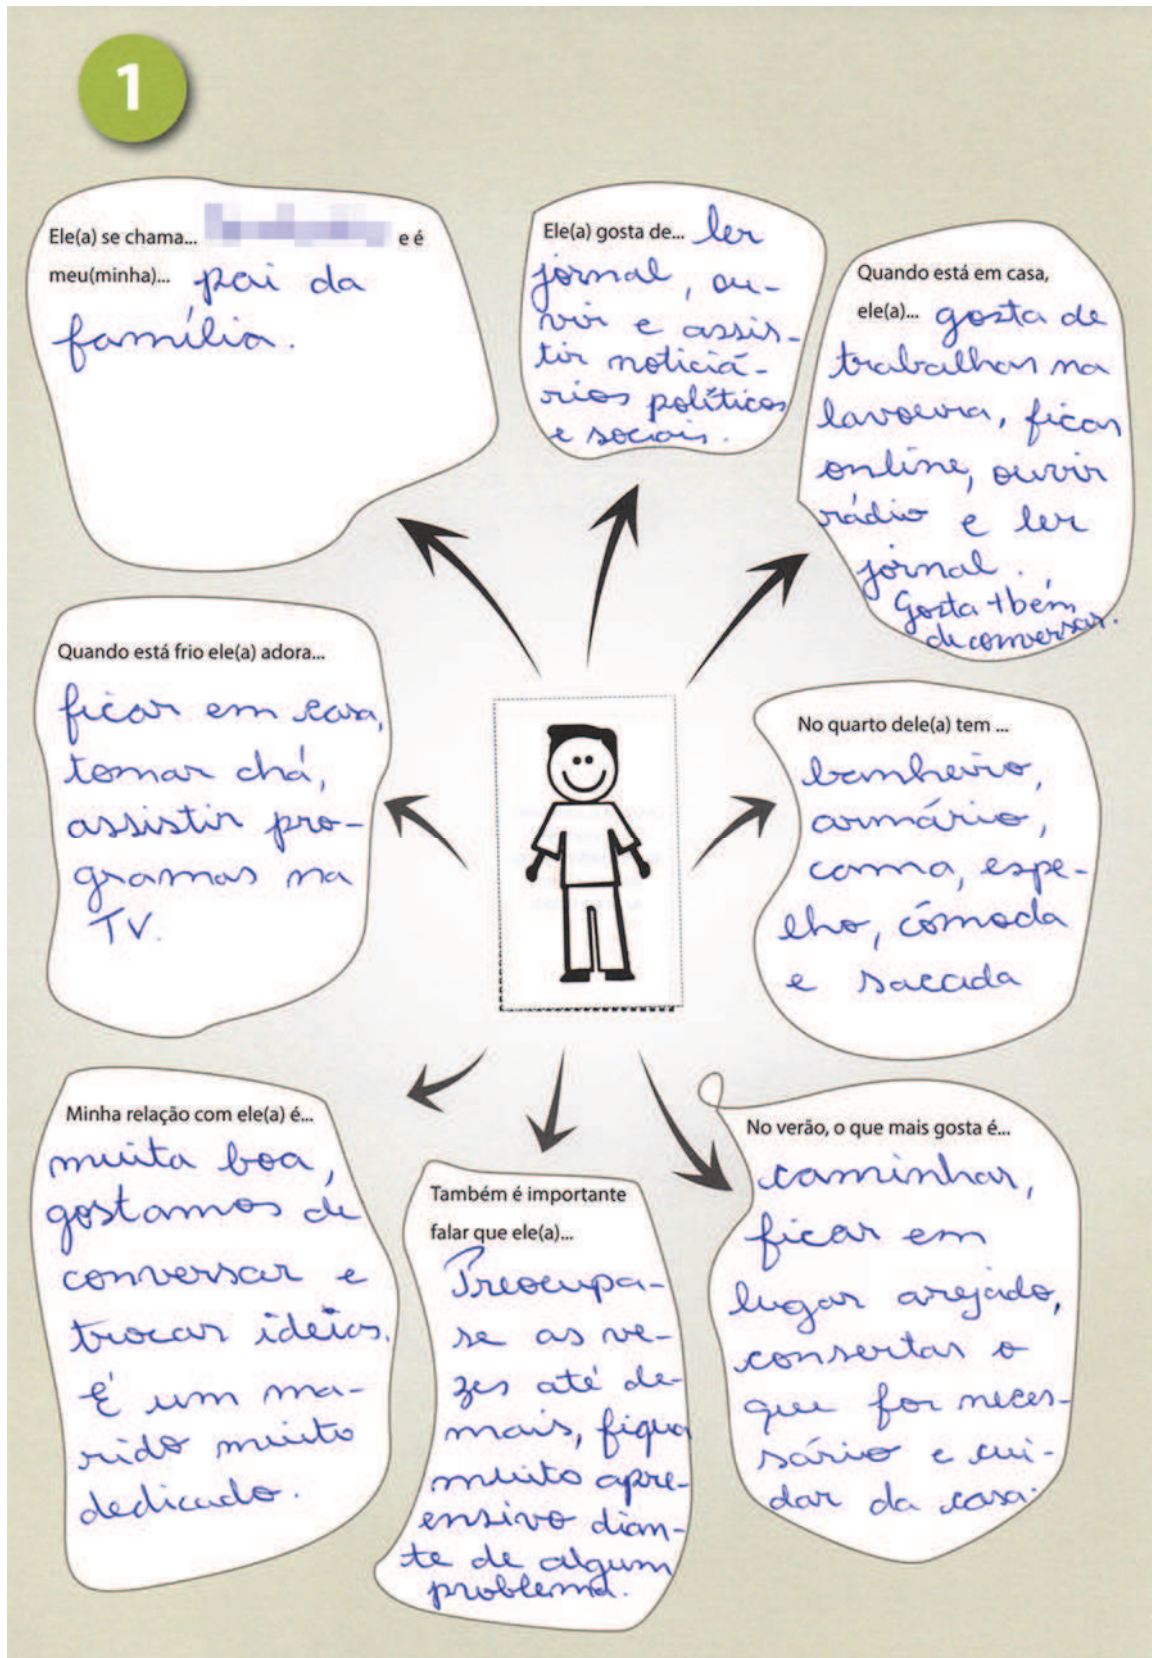 1
Ele(a) se chama... e é
meu(minha)... pai da
família.
Ele(a) gosta de... ler
jornal, ou-
vir e assis-
tir noticiá-
rios políticos
e sociais.
Quando está em casa,
ele(a)... gosta de
trabalhar na
lavoura, ficar
online, ouvir
rádio e ler
jornal.
Gosta +bém
de conversar.
Quando está frio ele(a) adora...
ficar em casa,
tomar chá,
assistir pro-
gramas na
TV.
No quarto dele(a) tem ...
banheiro,
armário,
cama, espe-
lho, cômoda
e saccada
Minha relação com ele(a) é...
muita boa,
gostamos de
conversar e
trocar idéias.
É um ma-
rido muito
dedicado.
Também é importante
falar que ele(a)...
Preocupa-
se as ve-
zes até de-
mais, fiqua
muito apre-
ensivo dian-
te de algum
problema.
No verão, o que mais gosta é...
caminhar,
ficar em
lugar arejado,
consertar o
que for neces-
sário e cui-
dar da casa.